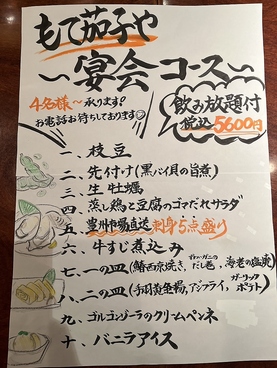 もて茄子や
〜宴会コース〜
4名様〜承ります!
お電話お待ちしております
飲み放題付
税込5600円
一、枝豆
二、先付け(黒バイ貝の旨煮)
三、生牡蠣
四、蒸し鶏と豆腐のゴマだれサラダ
五、豊州市場直送刺身5点盛り
六、牛すじ煮込み
七、一の皿(鰆西京焼き、だし巻、海老の塩焼)
八、二の皿(手羽黄金揚、アジフライ、ガーリックポテト)
九、ゴルゴンゾーラのクリームペンネ
十、バニラアイス